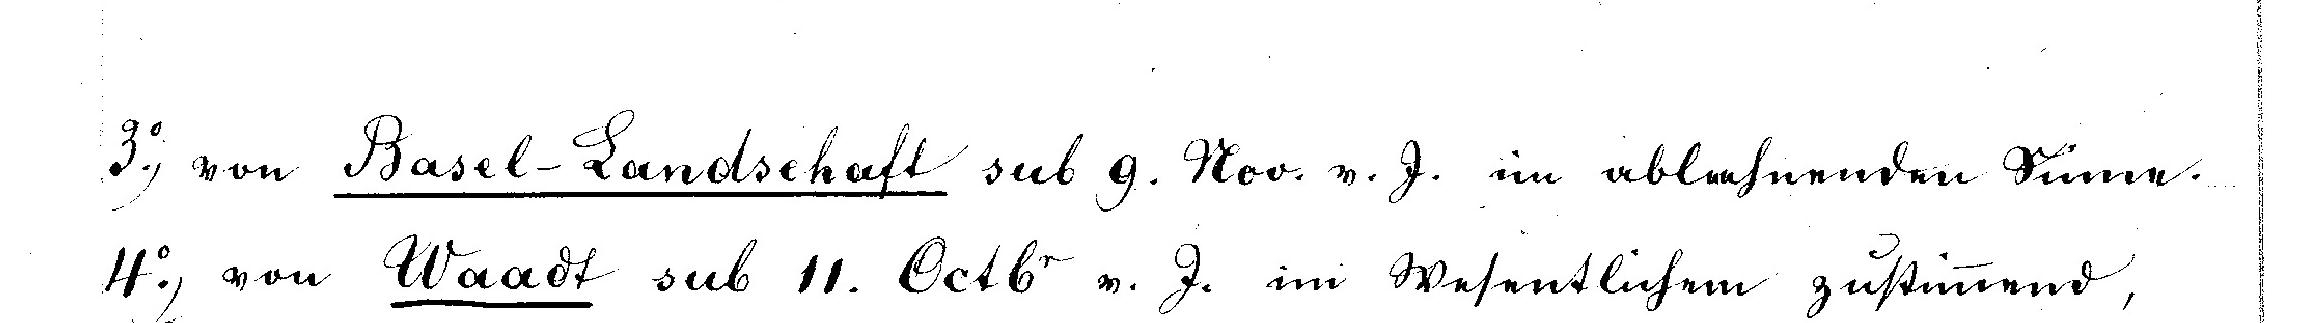 3º, von Basel-Landschaft sub 9. Nov. v. J. im ablehnenden Sinne.
4º, von Waadt sub 11. Octbr v. J. im Wesentlichen zustim̅end,